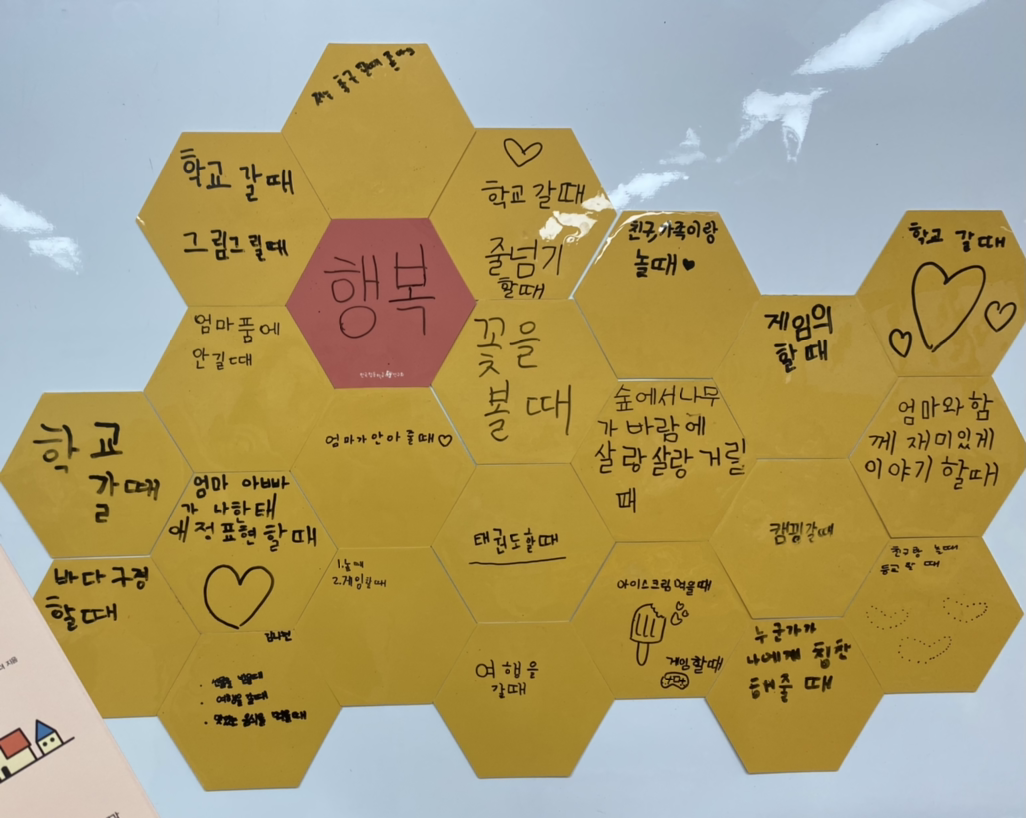 학교 갈 때
그림그릴때
♡
학교 갈 때
줄넘기
할때
행복
친구,가족이랑
놀때♥
학교 갈 때
게임의
할 때
엄마 품에
안길 때
꽃을
볼 때
엄마가 안아 줄 때♡
숲에서 나무
가 바람에
살랑살랑 거릴
때
엄마와 함
께 재미있게
이야기 할 때
학교
갈 때
엄마 아빠
가 나한태
애정표현 할 때
태권도할때
캠핑갈때
바다 구경
할 때
1.놀 때
2.게임할 때
아이스크림 먹을때
게임할때
친구랑 놀때
때
여행을
갈때
누군가가
나에게 칭찬
해줄 때
선물을 받을때
여행을 갈때
맛있는 음식을 먹을때